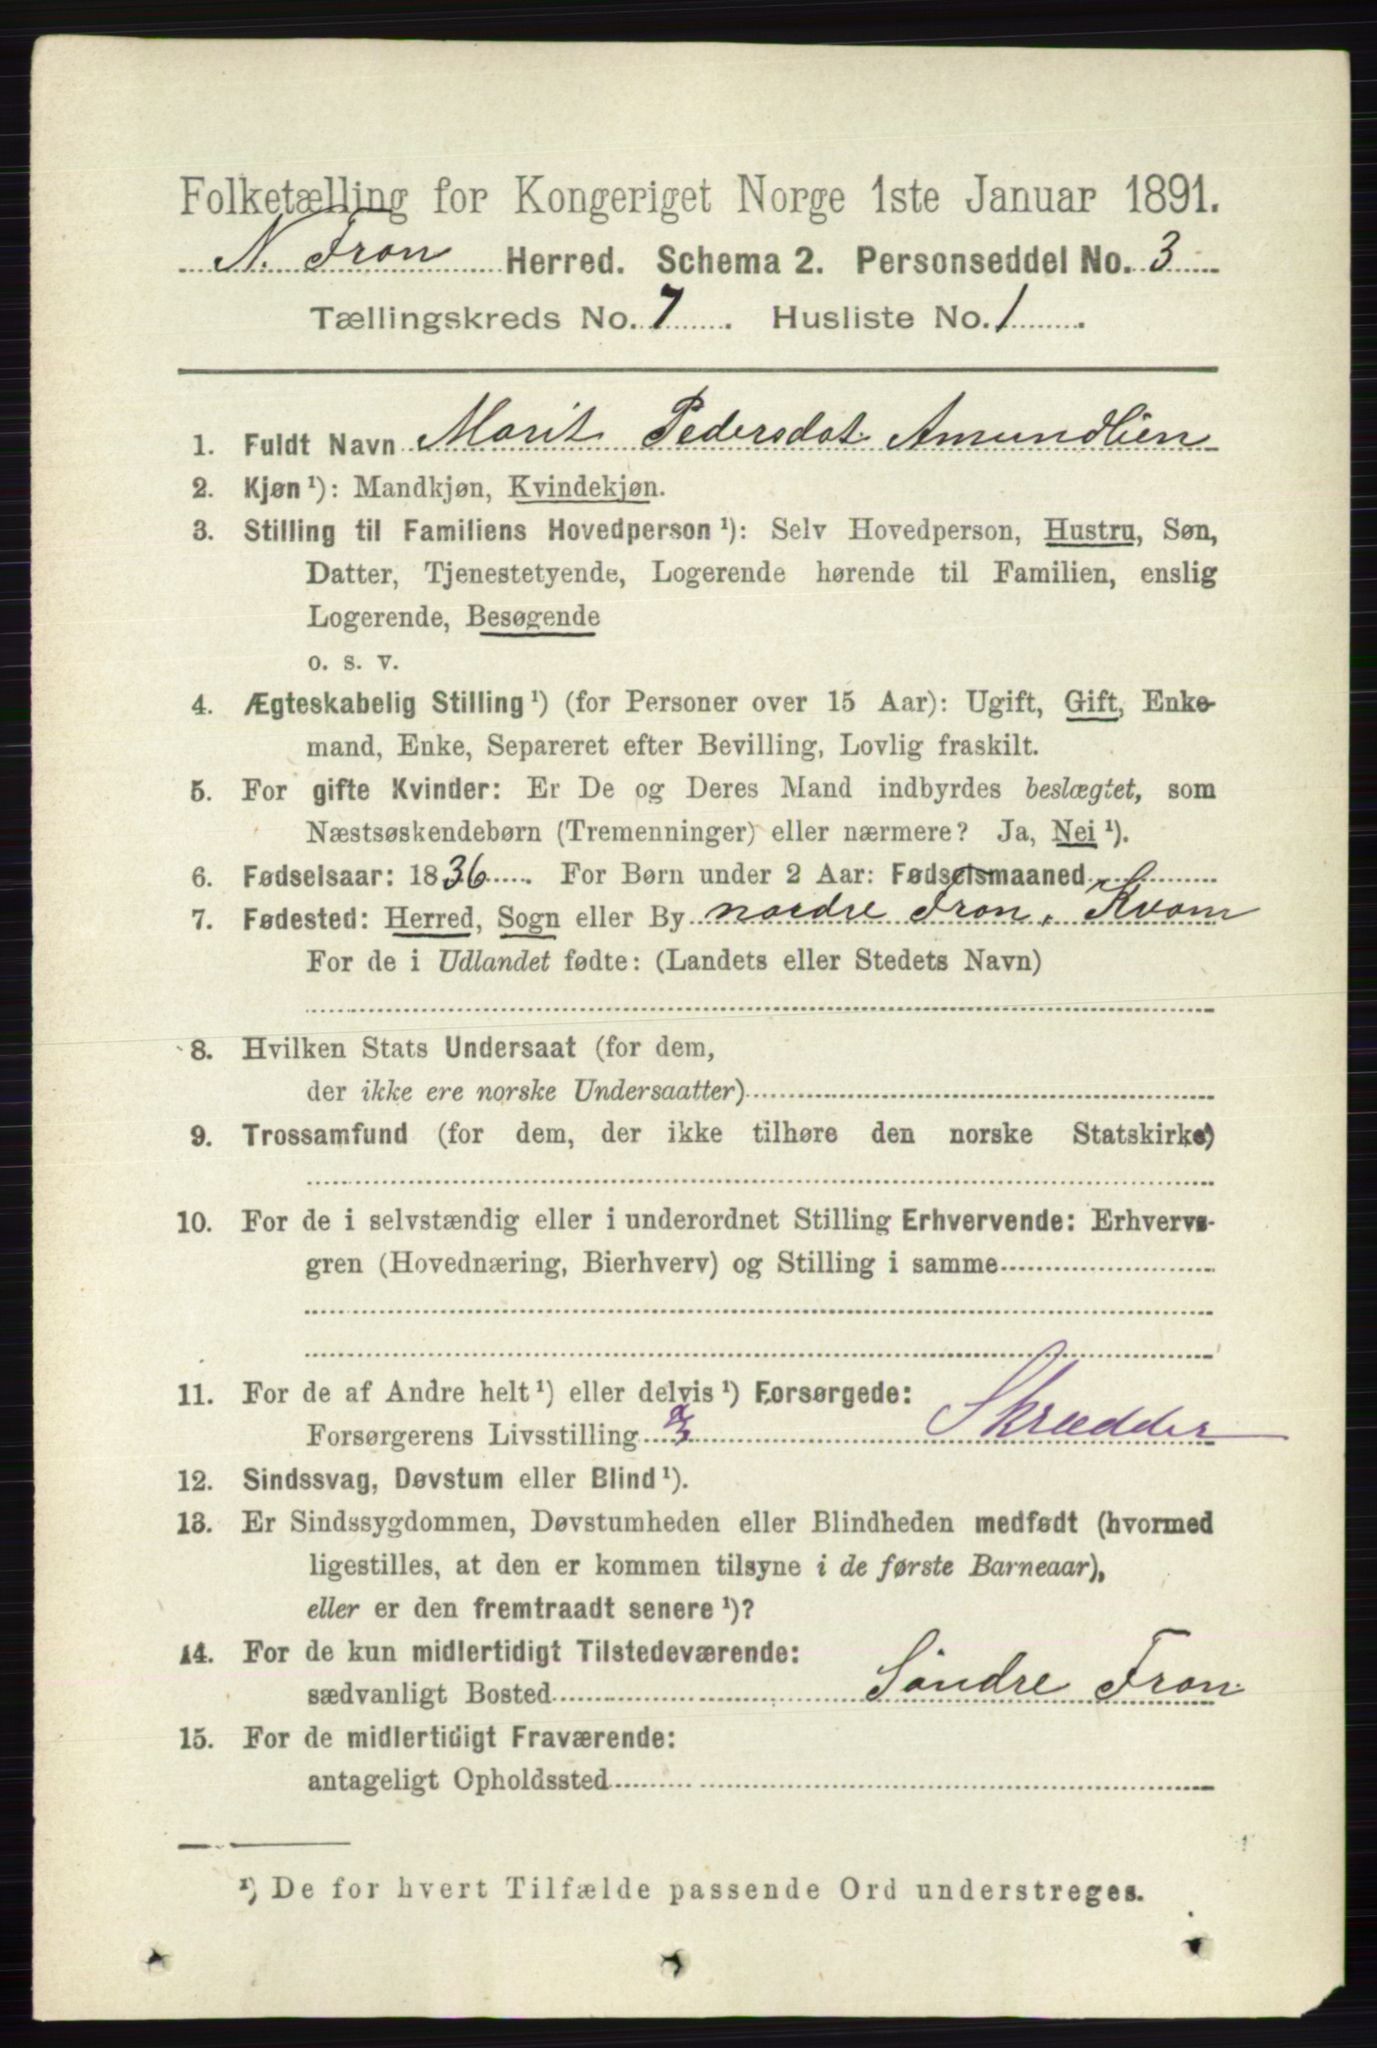 Folketælling for Kongeriget Norge 1ste Januar 1891.
N. Fron Herred. Schema 2. Personseddel No. 3
Tællingskreds No. 7. Husliste No. 1.
1. Fuldt Navn Marit Pedersdat. Amundlien
2. Kjøn ¹): Mandkjøn, Kvindekjøn.
3. Stilling til Familiens Hovedperson ¹): Selv Hovedperson, Hustru, Søn,
Datter, Tjenestetyende, Logerende hørende til Familien, enslig
Logerende, Besøgende
o. s. v.
4. Ægteskabelig Stilling ¹) (for Personer over 15 Aar): Ugift, Gift, Enke-
mand, Enke, Separeret efter Bevilling, Lovlig fraskilt.
5. For gifte Kvinder: Er De og Deres Mand indbyrdes beslægtet, som
Næstsøskendebørn (Tremenninger) eller nærmere? Ja, Nei ¹).
6. Fødselsaar: 1836. For Børn under 2 Aar: Fødselsmaaned
7. Fødested: Herred, Sogn eller By nordre Fron, Kvam
For de i Udlandet fødte: (Landets eller Stedets Navn)
8. Hvilken Stats Undersaat (for dem,
der ikke ere norske Undersaatter)
9. Trossamfund (for dem, der ikke tilhøre den norske Statskirke)
10. For de i selvstændig eller i underordnet Stilling Erhvervende: Erhvervs-
gren (Hovednæring, Bierhverv) og Stilling i samme
11. For de af Andre helt ¹) eller delvis ¹) Forsørgede:
Forsørgerens Livsstilling Skrædder
12. Sindssvag, Døvstum eller Blind ¹).
13. Er Sindssygdommen, Døvstumheden eller Blindheden medfødt (hvormed
ligestilles, at den er kommen tilsyne i de første Barneaar),
eller er den fremtraadt senere ¹)?
14. For de kun midlertidigt Tilstedeværende:
sædvanligt Bosted Söndre Fron.
15. For de midlertidigt Fraværende:
antageligt Opholdssted
¹) De for hvert Tilfælde passende Ord understreges.